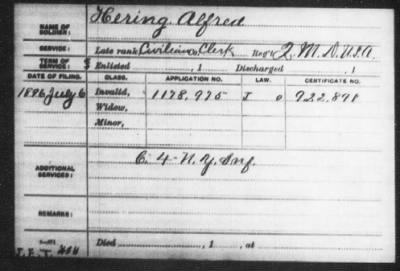 NAME OF SOLDIER: Hering Alfred
SERVICE: Late rank Civilian Clerk Reg't Q.M.D. U.S.A.
TERM OF SERVICE: Enlisted , 1 Discharged , 1
DATE OF FILING. CLASS. APPLICATION NO. LAW. CERTIFICATE NO.
1896 July 6 Invalid, 1178,975 J o 922,891
Widow,
Minor,
ADDITIONAL SERVICES: C. 4- N.Y. Inf.
REMARKS:
Died , 1 , at